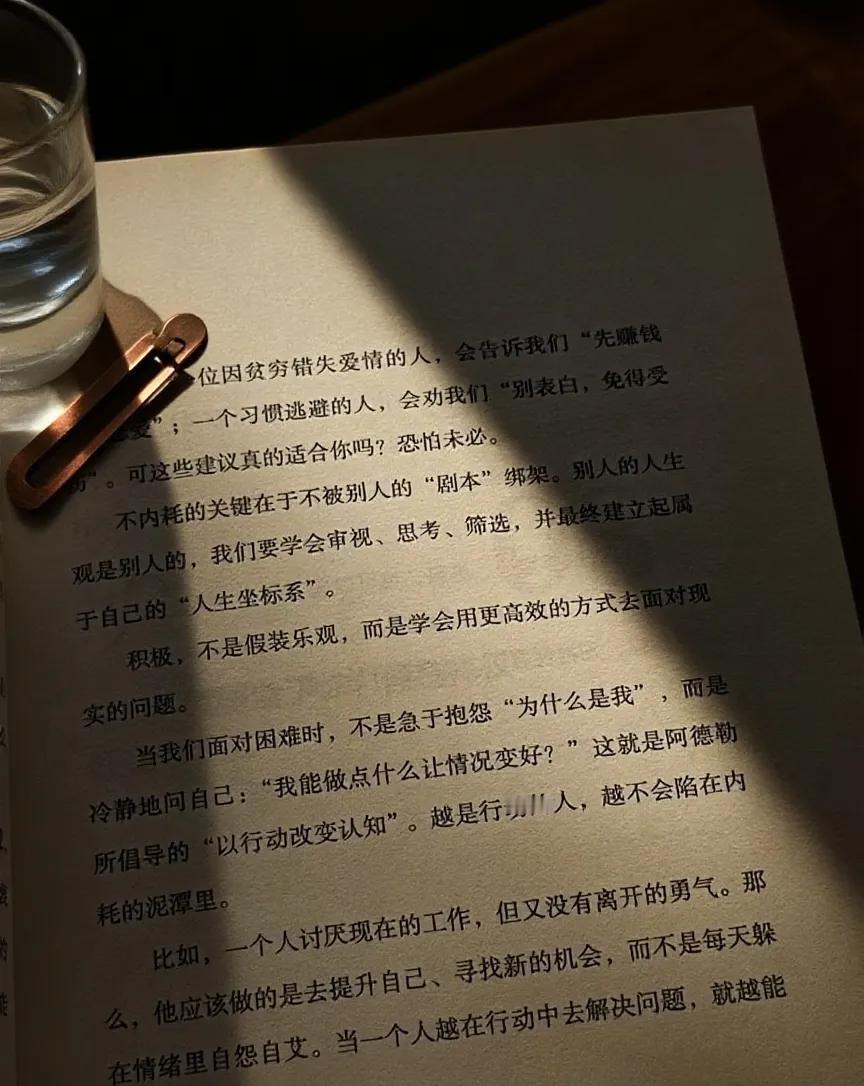 位因贫穷错失爱情的人，会告诉我们“先赚钱
爱”；一个习惯逃避的人，会劝我们“别表白，免得受
”。可这些建议真的适合你吗？恐怕未必。
不内耗的关键在于不被别人的“剧本”绑架。别人的人生
观是别人的，我们要学会审视、思考、筛选，并最终建立起属
于自己的“人生坐标系”。
积极，不是假装乐观，而是学会用更高效的方式去面对现
实的问题。
当我们面对困难时，不是急于抱怨“为什么是我”，而是
冷静地问自己：“我能做点什么让情况变好？”这就是阿德勒
所倡导的“以行动改变认知”。越是行人，越不会陷在内
耗的泥潭里。
比如，一个人讨厌现在的工作，但又没有离开的勇气。那
么，他应该做的是去提升自己、寻找新的机会，而不是每天躲
在情绪里自怨自艾。当一个人越在行动中去解决问题，就越能